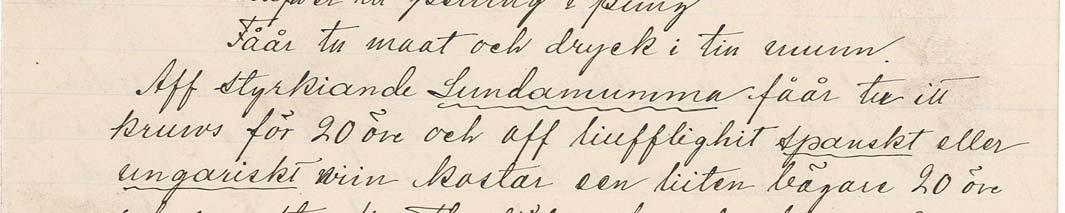 i pung
Fåår tu maat och dryck i tin munn.
Aff styrkiande Lundamumma fåår tu itt
kruus för 20 öre och aff liufflighit spanskt eller
ungariskt wiin kostar een liiten bägare 20 öre